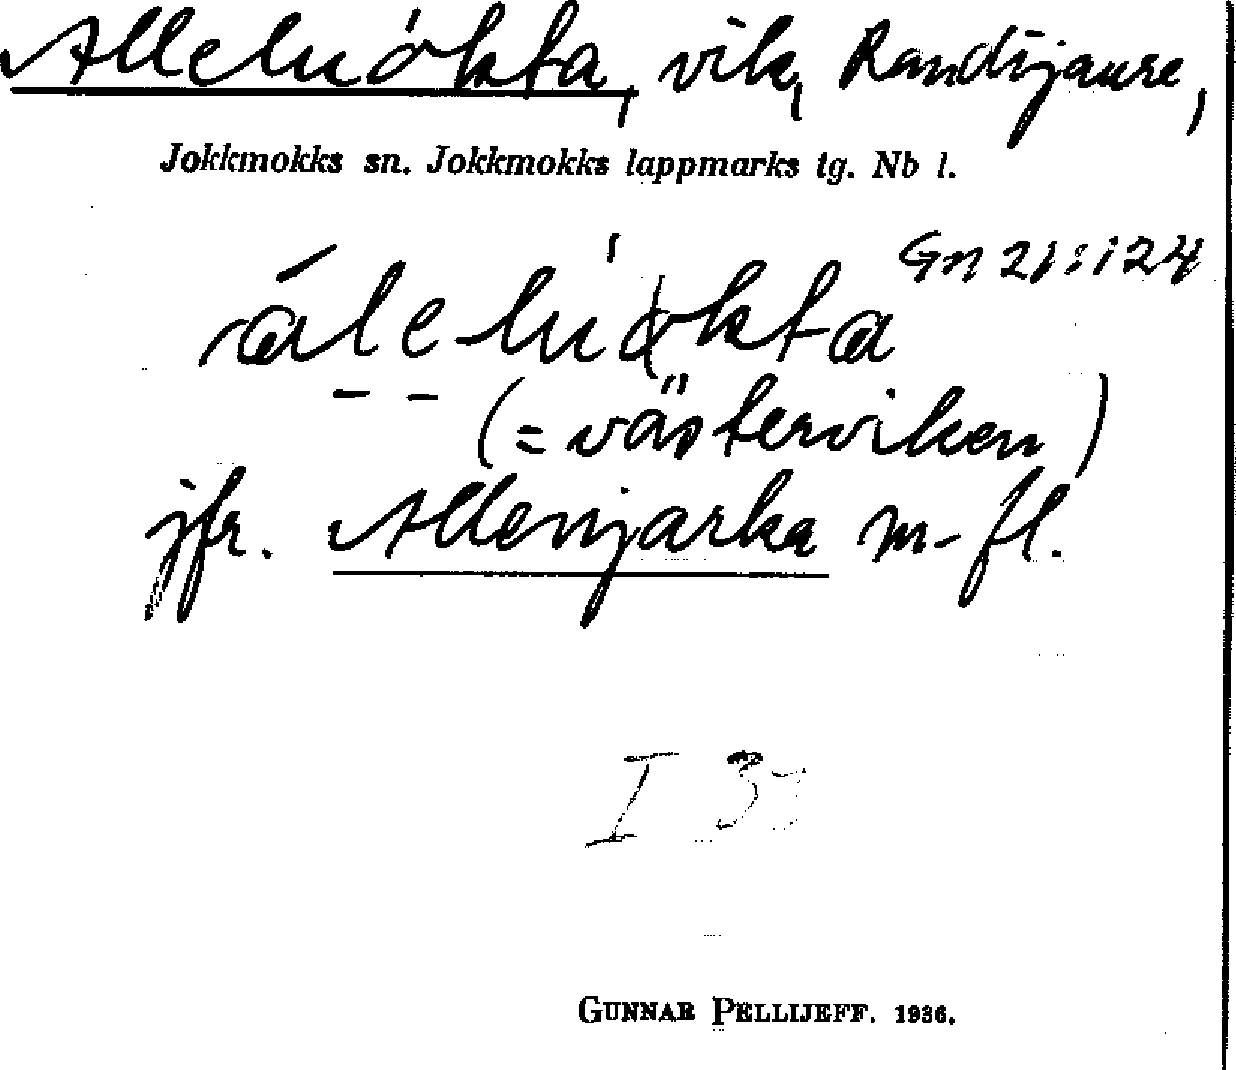 Alleluókta, vik, Randijaure,
Jokkmokks sn. Jokkmokks lappmarks tg. Nb l.
Gn 21:124
ále-luǿkta
(= västerviken)
jfr. Allenjarka m. fl.
I 33
GUNNAR PELLIJEFF. 1936.